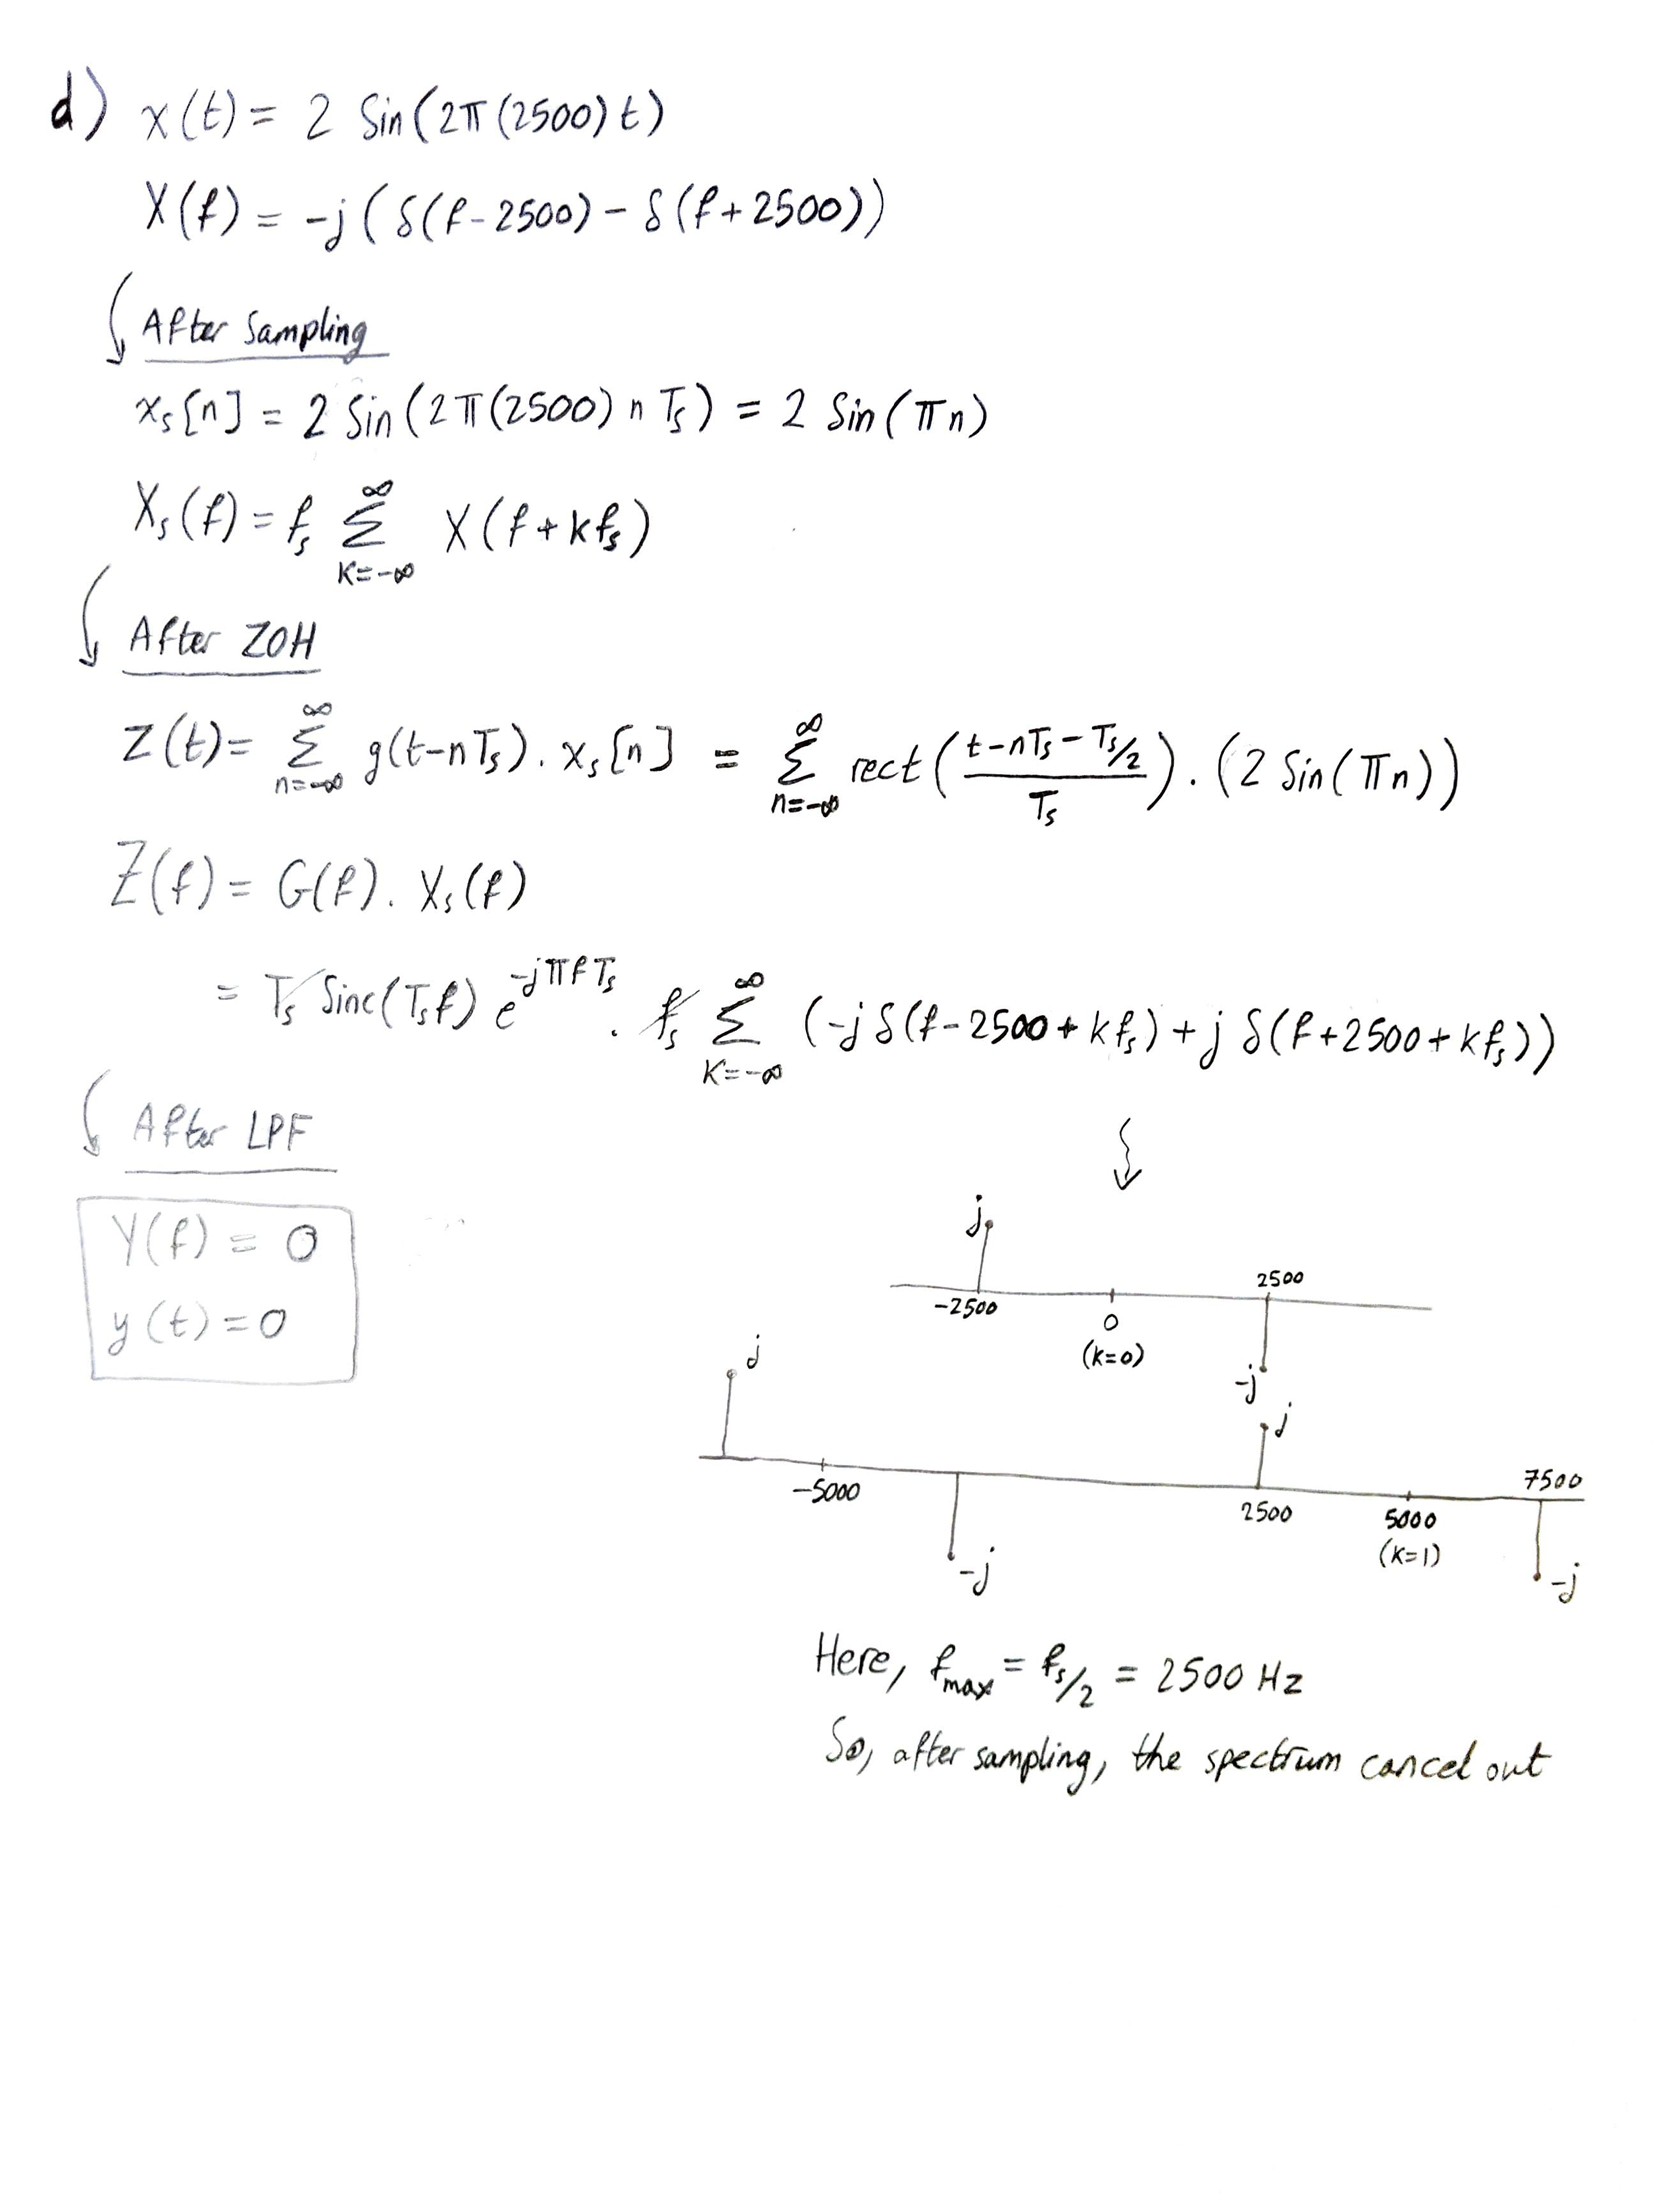 d) x(t) = 2 Sin(2π(2500)t)
X(f) = -j(δ(f-2500) - δ(f+2500))
After Sampling
xs[n] = 2 Sin(2π(2500) n Ts) = 2 Sin(πn)
Xs(f) = fs Σ_{K=-∞}^{∞} X(f+kfs)
After ZOH
Z(t) = Σ_{n=-∞}^{∞} g(t-nTs) . xs[n] = Σ_{n=-∞}^{∞} rect((t-nTs-Ts/2)/Ts) . (2 Sin(πn))
Z(f) = G(f) . Xs(f)
= Ts Sinc(Tsf) e^{-jπfTs} . fs Σ_{K=-∞}^{∞} (-j δ(f-2500+kfs) + j δ(f+2500+kfs))
After LPF
Y(f) = 0
y(t) = 0
j
2500
-2500
0
(k=0)
-j
j
j
7500
-5000
2500
5000
(k=1)
-j
-j
Here, fmax = fs/2 = 2500 Hz
So, after sampling, the spectrum cancel out